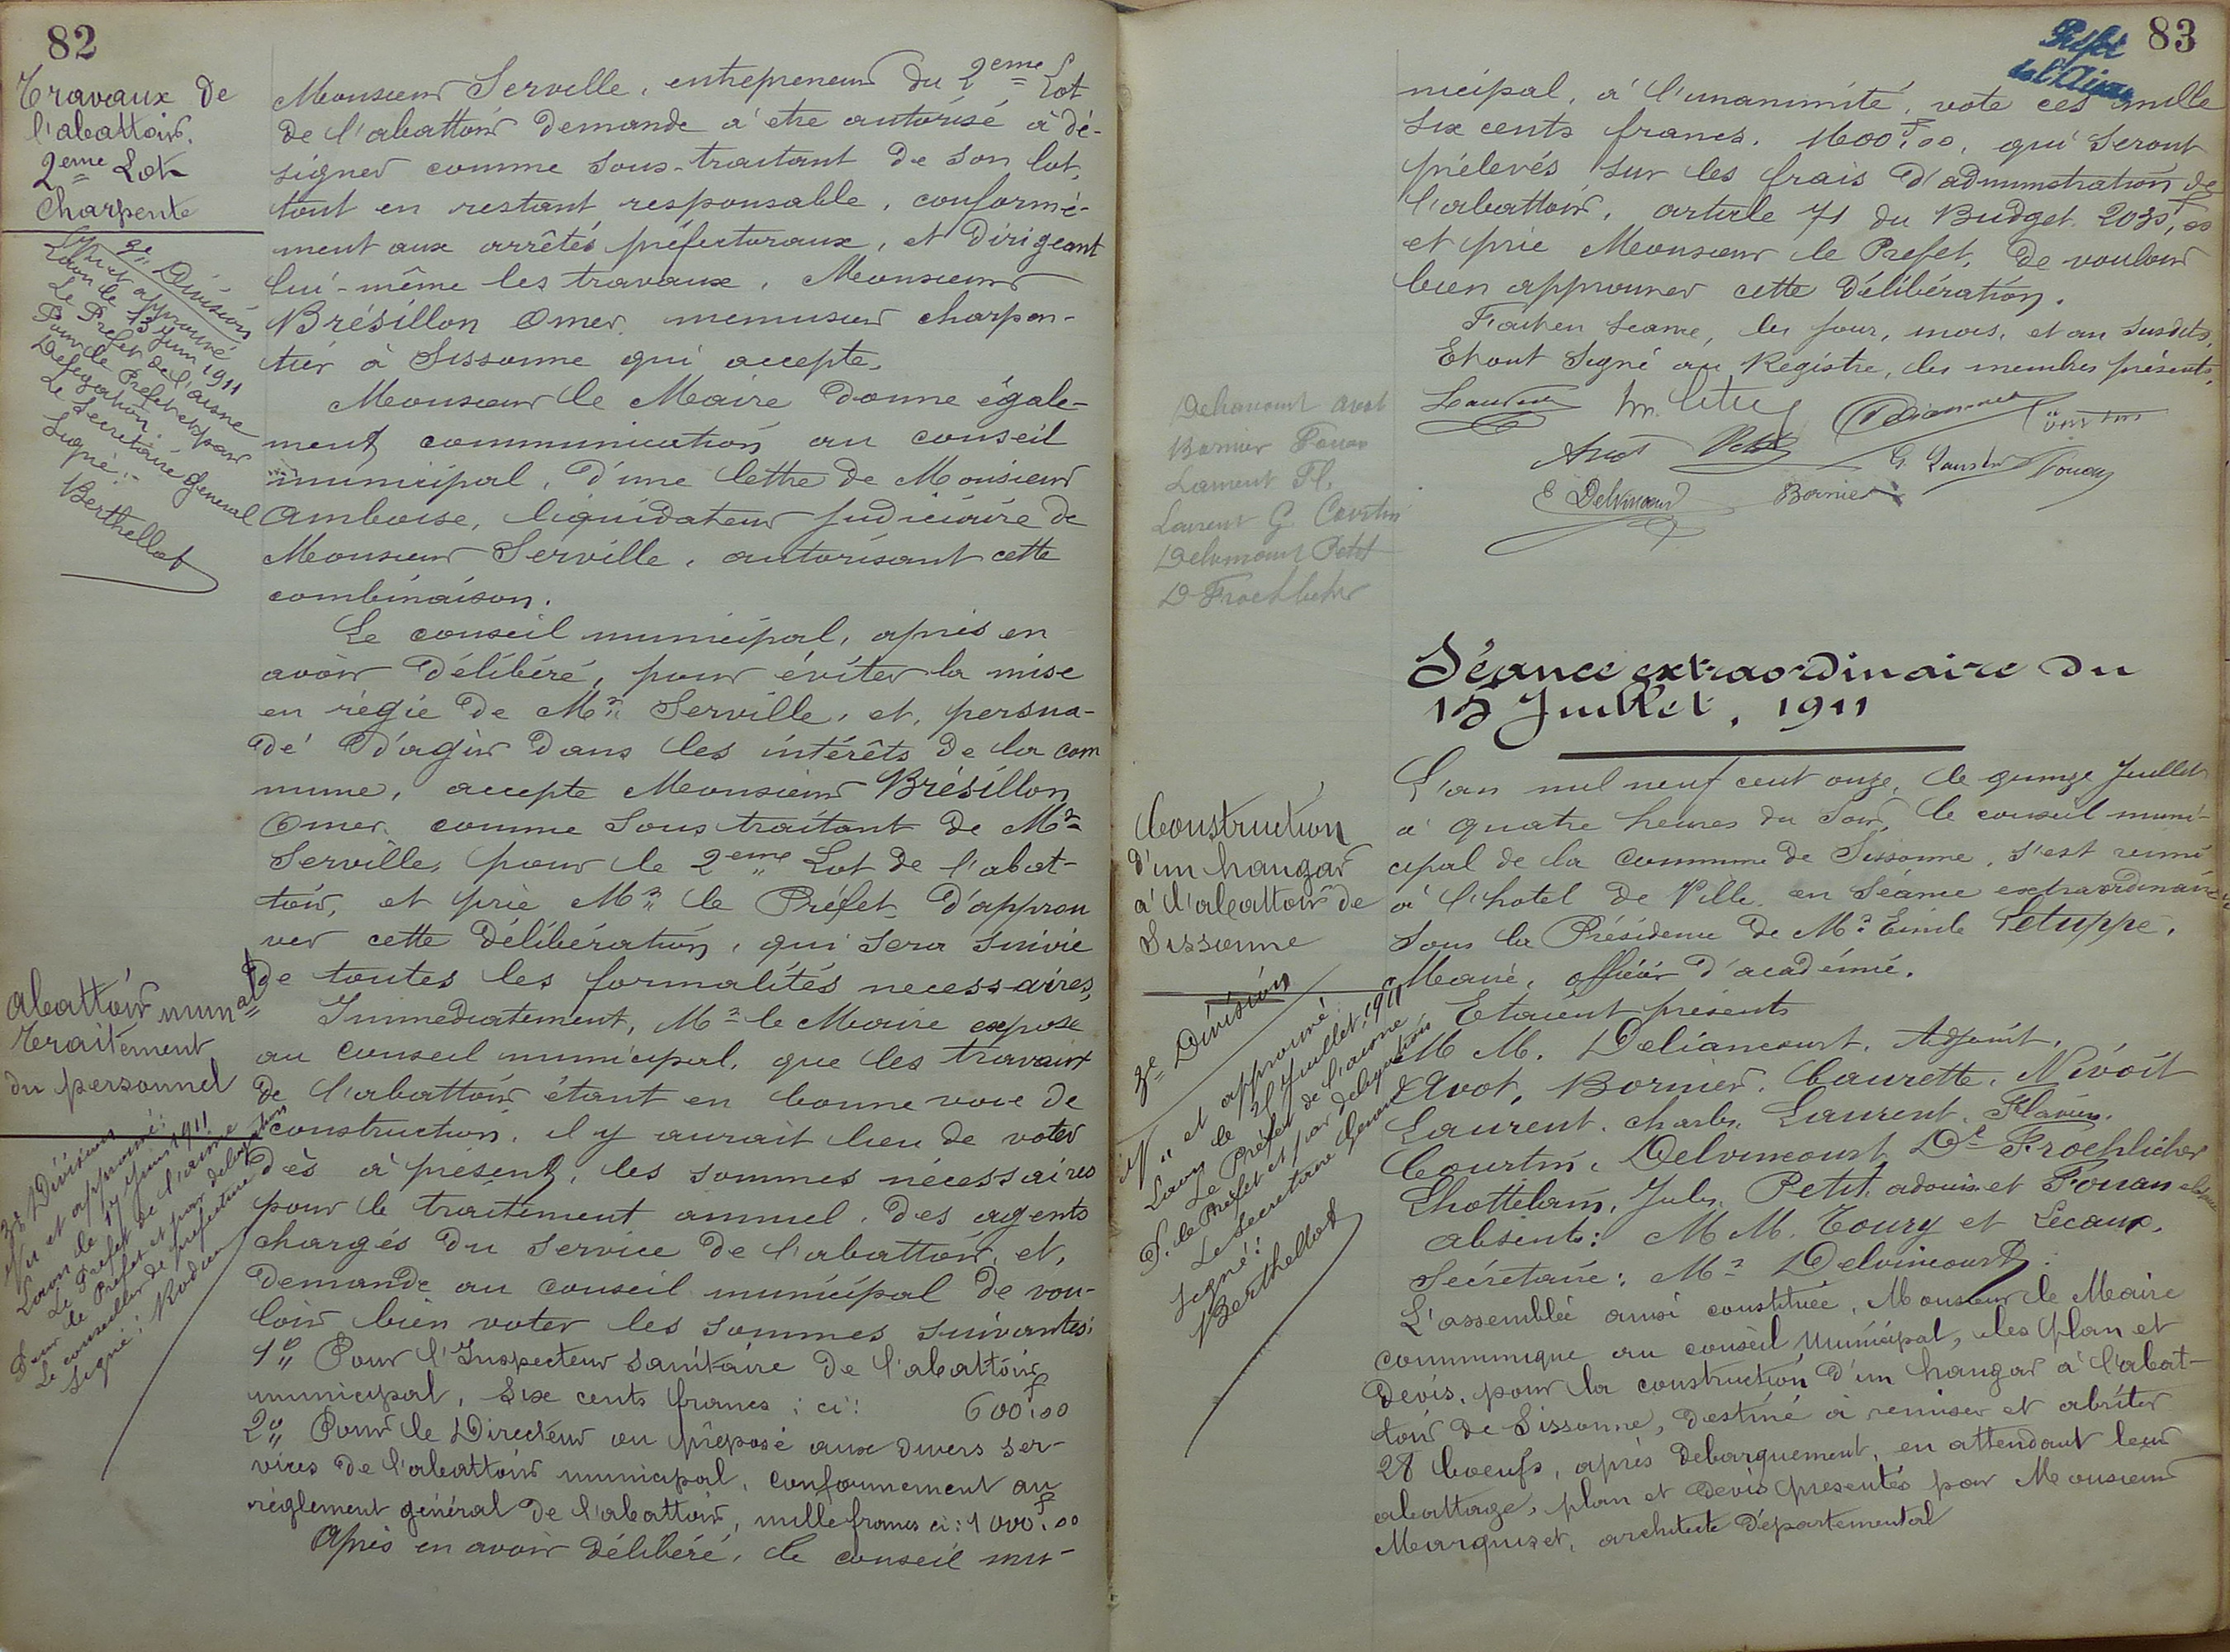 82
Travaux de
l'abattoir.
2eme Lot
Charpente
2e Division
Vu et approuvé
Laon le 13 Juin 1911
Le Préfet de l'aisne
Pour le Préfet et par
Délégation.
Le Secrétaire Général
Signé:
Berthellot
Monsieur Serville, entrepreneur du 2eme Lot
de l'abattoir demande à être autorisé à dé-
signer comme sous-traitant de son lot,
tout en restant responsable, conformé-
ment aux arrêtés préfectoraux, et dirigeant
lui-même les travaux, Monsieur
Brésillon Omer menuisier charpen-
tier à Sissonne qui accepte.
Monsieur le Maire donne égale-
ment communication au conseil
municipal, d'une lettre de Monsieur
Amboise, liquidateur Judiciaire de
Monsieur Serville, autorisant cette
combinaison.
Le conseil municipal, après en
avoir délibéré, pour éviter la mise
en régie de Mr Serville, et, persua-
dé d'agir dans les intérêts de la com
mune, accepte Monsieur Brésillon
Omer comme sous traitant de Mr
Serville, pour le 2eme Lot de l'abat-
toir, et prie Mr le Préfet d'approu
ver cette délibération, qui sera suivie
de toutes les formalités necessaires,
Abattoir munal
Traitement
du personnel
3e Division
Vu et approuvé:
Laon le 17 Juin 1911
Le Préfet de l'aisne
Pour le Préfet et par délégation
Le conseiller de préfecture
Signé:
Immediatement, Mr le Maire expose
au conseil municipal, que les travaux
de l'abattoir étant en bonne voie de
construction, il y aurait lieu de voter
dès à présent, les sommes nécessaires
pour le traitement annuel, des agents
chargés du service de l'abattoir, et,
demande au conseil municipal de vou-
loir bien voter les sommes suivantes:
1° Pour l'Inspecteur sanitaire de l'abattoir
municipal, six cents francs; ci: 600f,00
2° Pour le Directeur ou préposé aux divers ser-
vices de l'abattoir municipal, conformement au
règlement général de l'abattoir, mille francs ci: 1000f,00
Après en avoir délibéré, le conseil mu-
83
Préfet
de l'Aisne
nicipal, à l'unanimité, vote ces mille
six cents francs. 1600f,00, qui seront
prélevés sur les frais d'administration de
l'abattoir, article 71 du Budget 2035f,00
et prie Monsieur le Prefet, de vouloir
bien approuver cette délibération.
Fait en seance, les jour, mois, et an susdits,
Et ont signé au Registre, les membres présents,
Avot Petit
G. Laurent Fouan
E Delvincourt Bornier
Deliancourt Avot
Bornier Fouan
Laurent Fl.
Laurent G Courtin
Delvincourt Petit
D Froehlicher
Séance extraordinaire du
15 Juillet, 1911
Construction
d'un hangar
à l'abattoir de
Sissonne
3e Division
Vu et approuvé:
Laon le 21 Juillet, 1911
Le Préfet de l'aisne
P. le Préfet et par délégation
Le Secrétaire Général
Signé:
Berthellot
L'an mil neuf cent onze, le quinze Juillet
à quatre heures du soir, le conseil muni-
cipal de la commune de Sissonne, s'est reuni
à l'hotel de Ville en Séance extraordinaire
sous la Présidence de Mr Emile Letuppe,
Maire, officier d'académie.
Etaient présents
M M. Deliancourt, Adjoint,
Avot, Bornier, Caurette, Nivoit
Laurent, charles, Laurent, Flavien.
Courtin, Delvincourt, Dr Froehlicher
Lhottelain, Jules, Petit, adonis et Fouan
absents: M M. Toury et Lecaux.
Secrétaire: Mr Delvincourt.
L'assemblée ainsi constituée, Monsieur le Maire
communique au conseil Municipal, les plan et
devis, pour la construction d'un hangar à l'abat-
toir de Sissonne, destiné à remiser et abriter
28 boeufs, après debarquement, en attendant leur
abattage, plan et devis présentés par Monsieur
Marquiset, architecte départemental